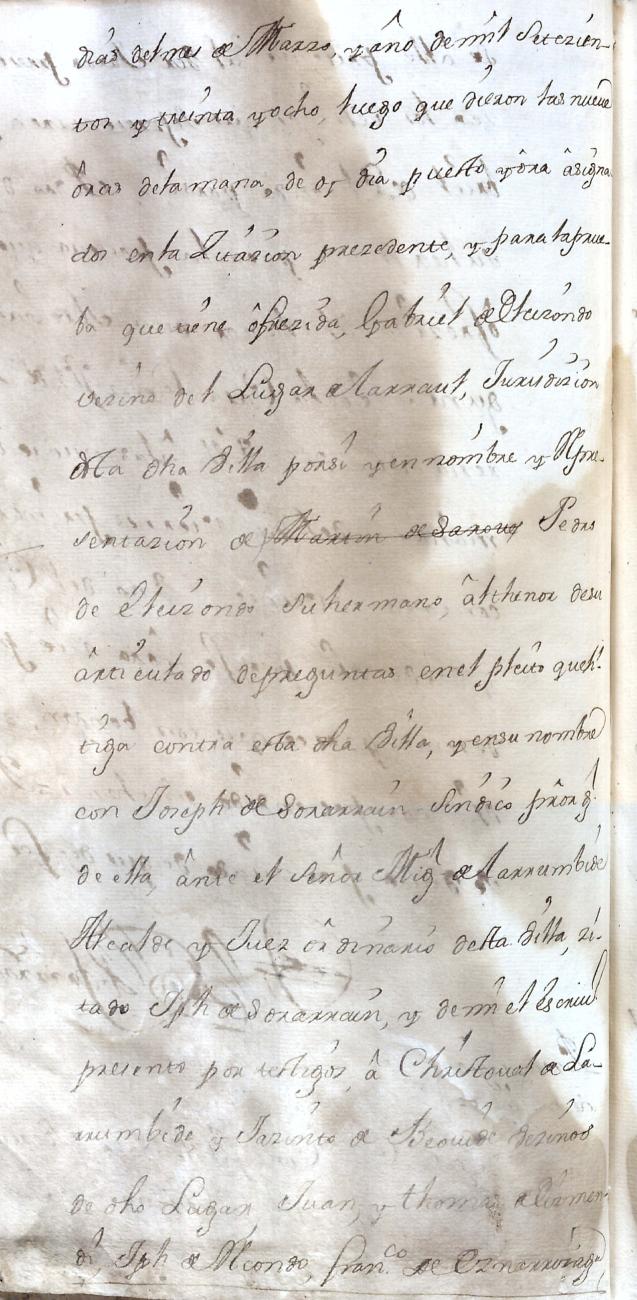 dias del mes de Marzo, y año de mil Setezien-
tos y treinta y ocho, luego que dieron las nueue
óras dela mana, de oy dia puesto y óra ásigna
dos en la Zitazion prezedente, y para la prue-
ba que tiene ôfrezida, Gabriel de Eleizondo
vezino del Lugar de Larraul, Jurisdizion
desta dha Villa por si y en nombre y Repre-
sentazion de Martin de Sarouy Pedro
de Eleizondo su hermano, âlthenor desu
ârticulado depreguntas enel pleito queli-
tiga contra esta dha Villa, y ensu nombre
con Joseph de Sorarrain Sindico prôr gl
de ella, ânte el Señor Migl de Larrumbide
Alcalde y Juez ôrdinario desta Villa, zi-
tado Jph de Sorarrain, y de mi el êscriuo
presento por testigos, â Christoual de La-
rrumbide y Jazinto de Beouide vezinos
de dho Lugar, Juan, y thomas de Lizmen-
di, Jph de Recondo, franco de Oznarrizaga